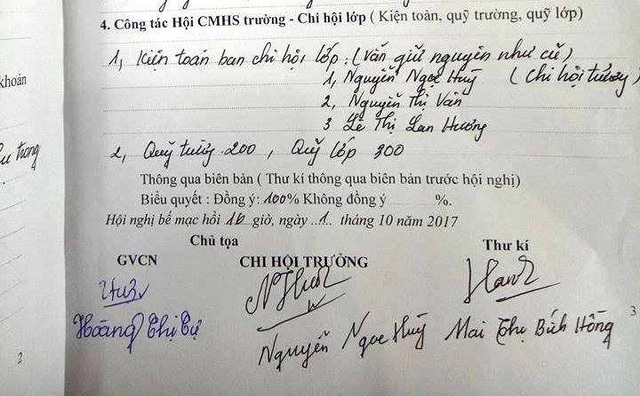 4. Công tác Hội CMHS trường - Chi hội lớp ( Kiện toàn, quỹ trường, quỹ lớp)
1, Kiện toàn ban chi hội lớp : (vẫn giữ nguyên như cũ)
1, Nguyễn Ngọc Huỳ ( Chi hội tưởng)
2, Nguyễn Thị Vân
3 Lê Thị Lan Hương
2, Quỹ tường 200 , Quỹ lớp 300
Thông qua biên bản ( Thư kí thông qua biên bản trước hội nghị)
Biểu quyết : Đồng ý: 100% Không đồng ý %.
Hội nghị bế mạc hồi 16 giờ, ngày 1 tháng 10 năm 2017
Chủ tọa
GVCN CHI HỘI TRƯỞNG Thư kí
Hoàng Thị Cự Nguyễn Ngọc Huỳ Mai Thị Bích Hồng
khoản
trong
2
3